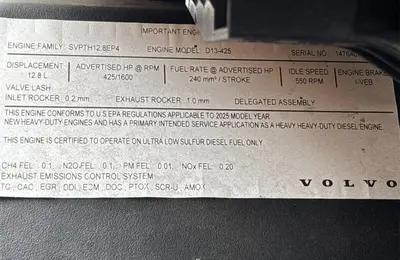 IMPORTANT ENGI
ENGINE FAMILY: SVPTH12.8EP4 ENGINE MODEL: D13-425 SERIAL NO
DISPLACEMENT ADVERTISED HP @ RPM FUEL RATE @ ADVERTISED HP IDLE SPEED ENGINE BRAKE
12.8 L 425/1600 240 mm³ / STROKE 550 RPM I-VEB
VALVE LASH
INLET ROCKER: 0.2 mm EXHAUST ROCKER: 1.0 mm DELEGATED ASSEMBLY
THIS ENGINE CONFORMS TO U.S EPA REGULATIONS APPLICABLE TO 2025 MODEL YEAR
NEW HEAVY-DUTY ENGINES AND HAS A PRIMARY INTENDED SERVICE APPLICATION AS A HEAVY HEAVY-DUTY DIESEL ENGINE.
THIS ENGINE IS CERTIFIED TO OPERATE ON ULTRA LOW SULFUR DIESEL FUEL ONLY
CH4 FEL: 0.1, N2O-FEL: 0.1, PM FEL: 0.01, NOx FEL: 0.20
EXHAUST EMISSIONS CONTROL SYSTEM
TC, CAC, EGR, DDI, ECM, DOC, PTOX, SCR-U, AMOX
VOLVO